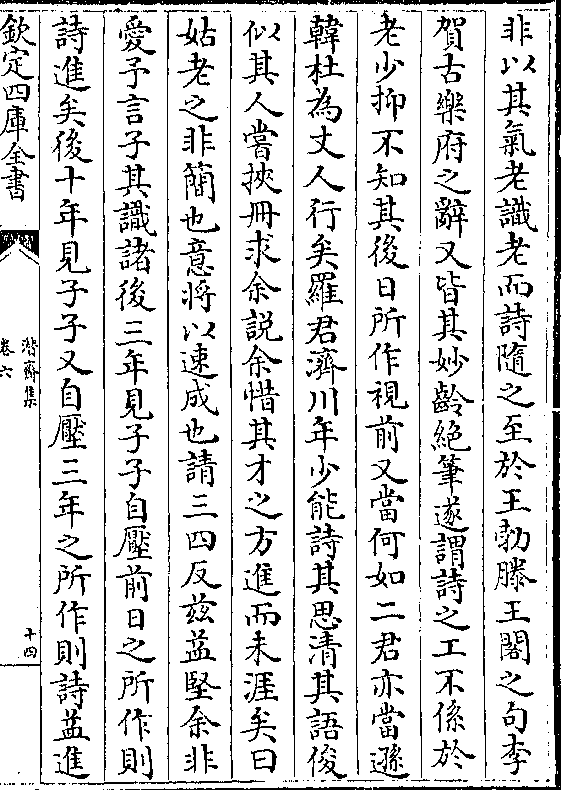 非以其氣老識老而詩隨之至於王勃滕王閣之句李
賀古樂府之辭又皆其妙齡絕筆遂謂詩之工不係於
老少抑不知其後日所作視前又當何如二君亦當遜
韓杜為丈人行矣羅君濟川年少能詩其思清其語俊
似其人嘗挾冊求余説余惜其才之方進而未涯矣曰
姑老之非簡也意將以速成也請三四反兹益堅余非
愛予言子其識諸後三年見子子自壓前日之所作則
詩進矣後十年見子子又自壓三年之所作則詩益進
欽定四庫全書
潜齋集
卷六
十四